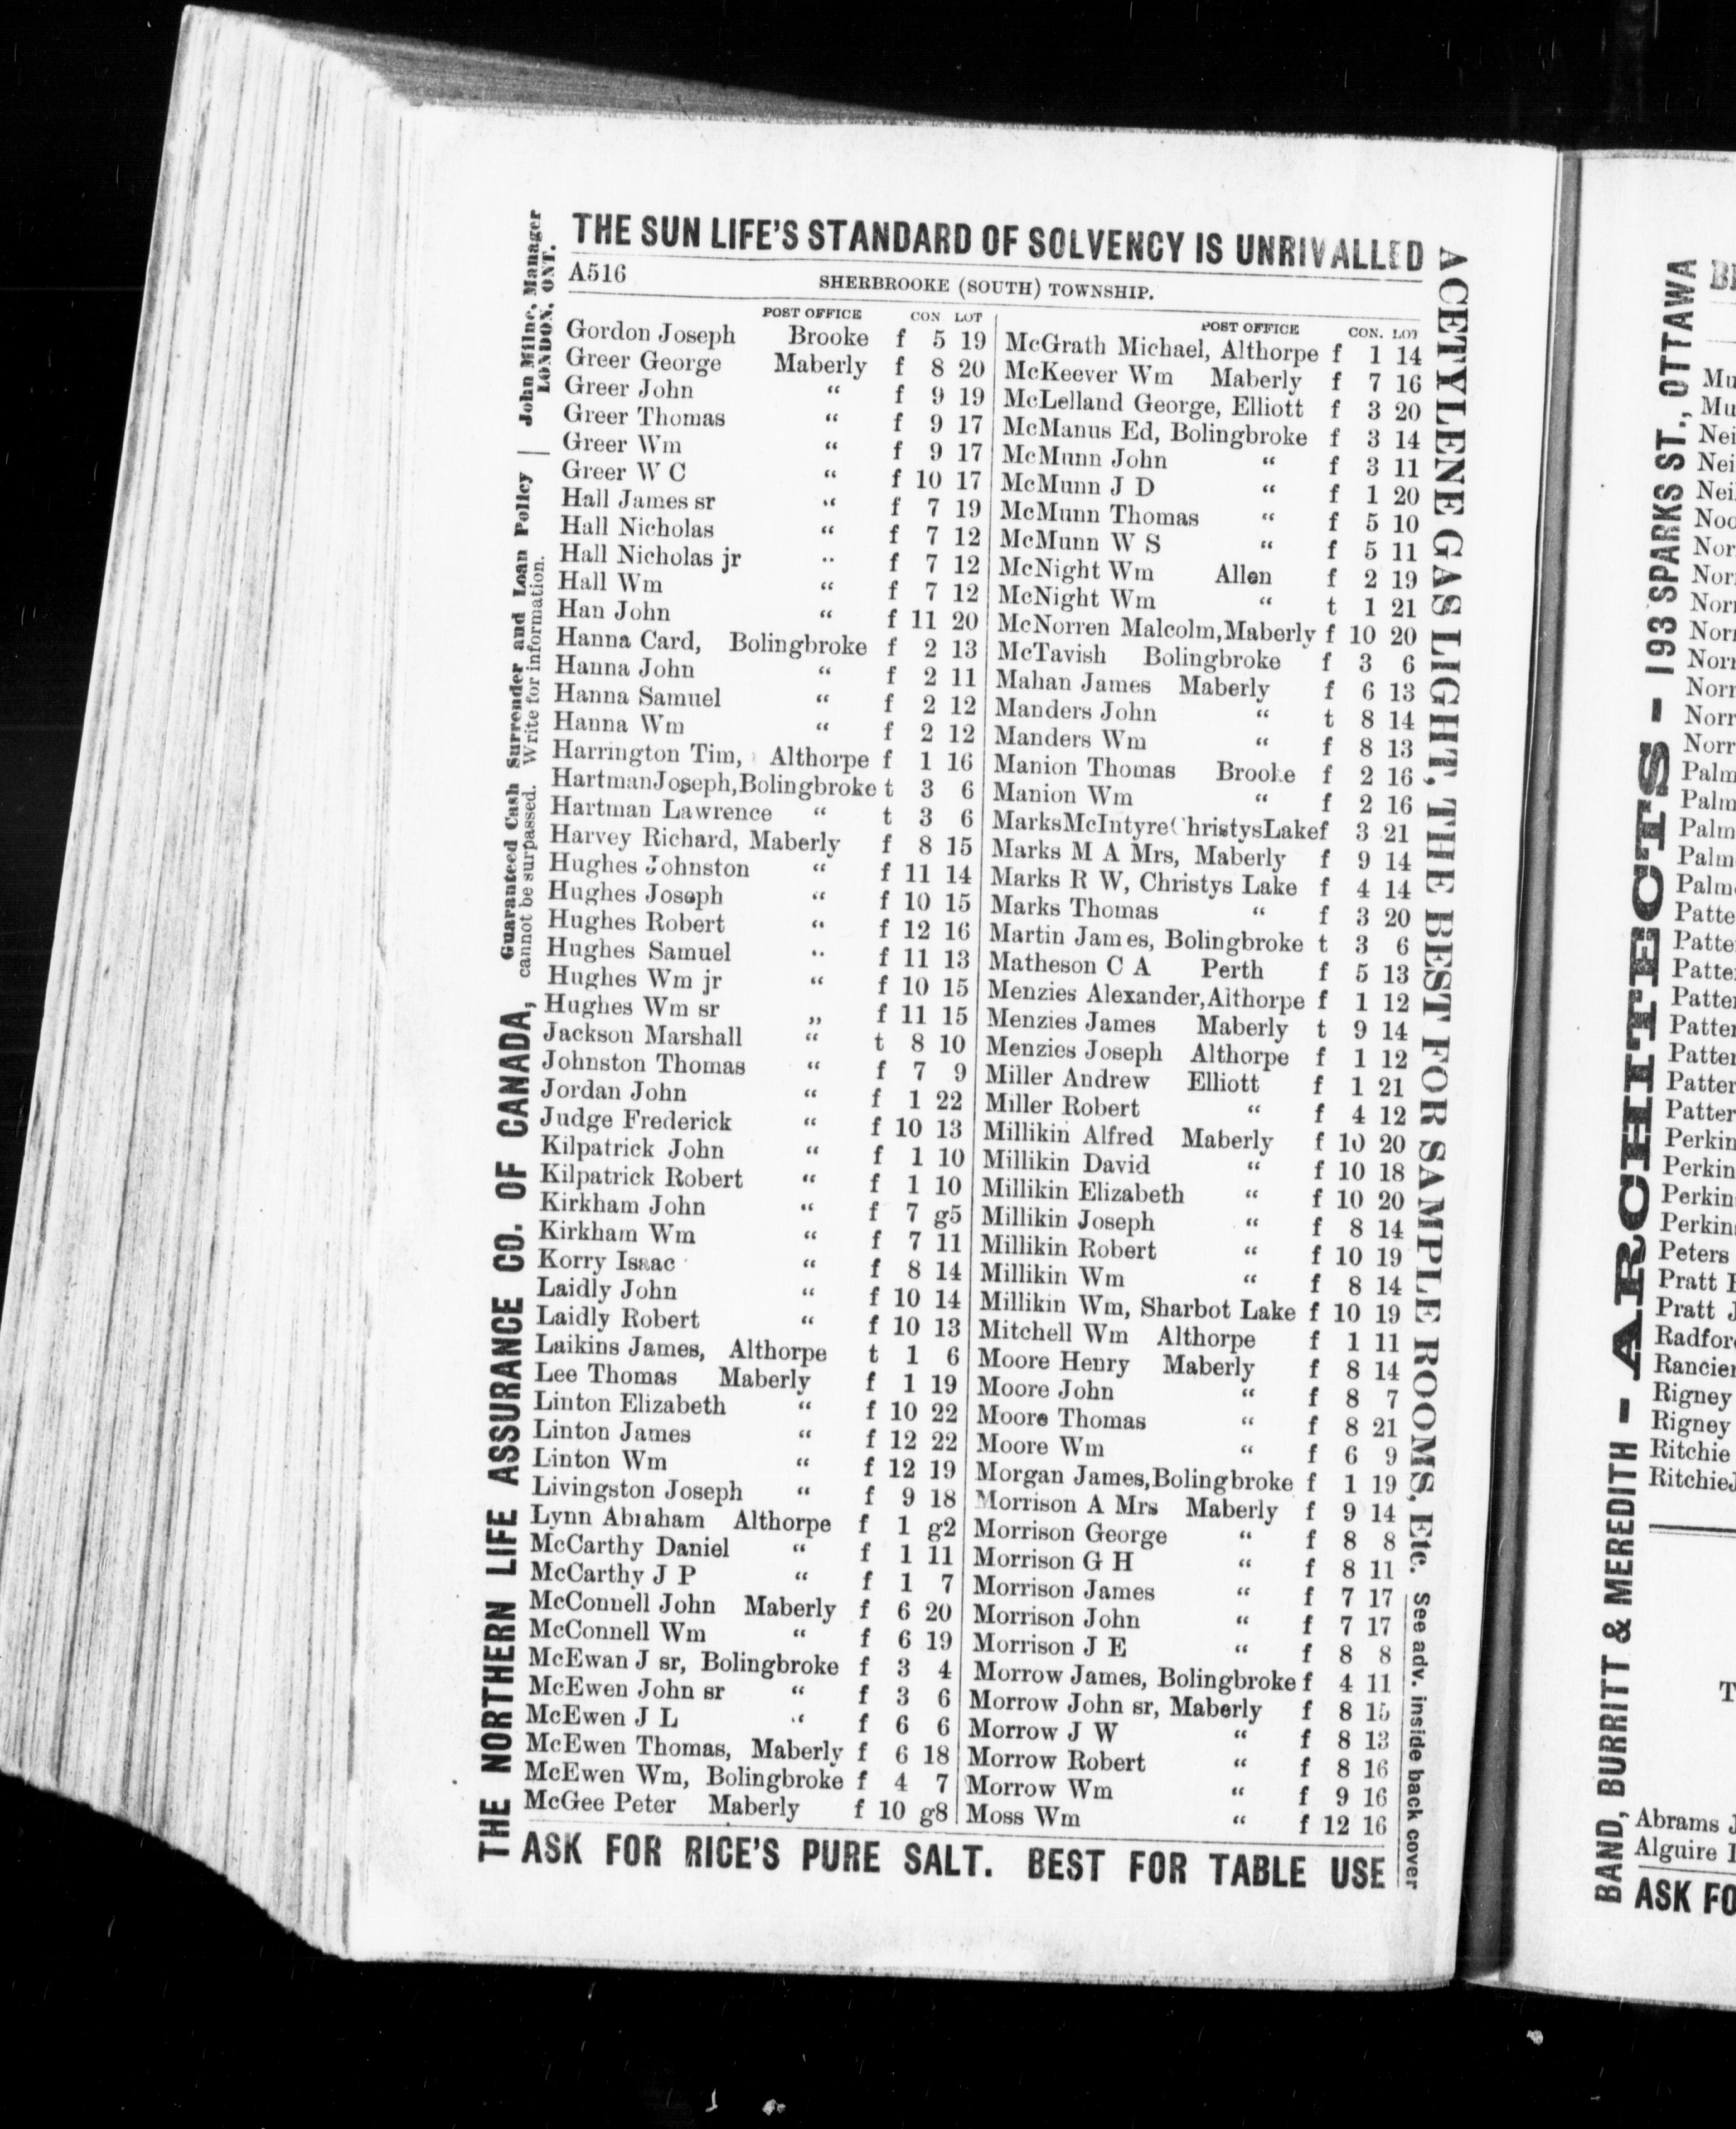 THE SUN LIFE'S STANDARD OF SOLVENCY IS UNRIVALLED
A516 SHERBROOKE (SOUTH) TOWNSHIP.
POST OFFICE CON LOT
Gordon Joseph Brooke f 5 19
Greer George Maberly f 8 20
Greer John “ f 9 19
Greer Thomas “ f 9 17
Greer Wm “ f 9 17
Greer W C “ f 10 17
Hall James sr “ f 7 19
Hall Nicholas “ f 7 12
Hall Nicholas jr “ f 7 12
Hall Wm “ f 7 12
Han John “ f 11 20
Hanna Card, Bolingbroke f 2 13
Hanna John “ f 2 11
Hanna Samuel “ f 2 12
Hanna Wm “ f 2 12
Harrington Tim, Althorpe f 1 16
HartmanJoseph,Bolingbroke t 3 6
Hartman Lawrence “ t 3 6
Harvey Richard, Maberly f 8 15
Hughes Johnston “ f 11 14
Hughes Joseph “ f 10 15
Hughes Robert “ f 12 16
Hughes Samuel “ f 11 13
Hughes Wm jr “ f 10 15
Hughes Wm sr „ f 11 15
Jackson Marshall “ t 8 10
Johnston Thomas “ f 7 9
Jordan John “ f 1 22
Judge Frederick “ f 10 13
Kilpatrick John “ f 1 10
Kilpatrick Robert “ f 1 10
Kirkham John “ f 7 g5
Kirkham Wm “ f 7 11
Korry Isaac “ f 8 14
Laidly John “ f 10 14
Laidly Robert “ f 10 13
Laikins James, Althorpe t 1 6
Lee Thomas Maberly f 1 19
Linton Elizabeth “ f 10 22
Linton James “ f 12 22
Linton Wm “ f 12 19
Livingston Joseph “ f 9 18
Lynn Abraham Althorpe f 1 g2
McCarthy Daniel “ f 1 11
McCarthy J P “ f 1 7
McConnell John Maberly f 6 20
McConnell Wm “ f 6 19
McEwan J sr, Bolingbroke f 3 4
McEwen John sr “ f 3 6
McEwen J L “ f 6 6
McEwen Thomas, Maberly f 6 18
McEwen Wm, Bolingbroke f 4 7
McGee Peter Maberly f 10 g8
POST OFFICE CON. LOT
McGrath Michael, Althorpe f 1 14
McKeever Wm Maberly f 7 16
McLelland George, Elliott f 3 20
McManus Ed, Bolingbroke f 3 14
McMunn John “ f 3 11
McMunn J D “ f 1 20
McMunn Thomas “ f 5 10
McMunn W S “ f 5 11
McNight Wm Allen f 2 19
McNight Wm “ t 1 21
McNorren Malcolm,Maberly f 10 20
McTavish Bolingbroke f 3 6
Mahan James Maberly f 6 13
Manders John “ t 8 14
Manders Wm “ f 8 13
Manion Thomas Brooke f 2 16
Manion Wm “ f 2 16
MarksMcIntyreChristysLakef 3 21
Marks M A Mrs, Maberly f 9 14
Marks R W, Christys Lake f 4 14
Marks Thomas “ f 3 20
Martin James, Bolingbroke t 3 6
Matheson C A Perth f 5 13
Menzies Alexander,Althorpe f 1 12
Menzies James Maberly t 9 14
Menzies Joseph Althorpe f 1 12
Miller Andrew Elliott f 1 21
Miller Robert “ f 4 12
Millikin Alfred Maberly f 10 20
Millikin David “ f 10 18
Millikin Elizabeth “ f 10 20
Millikin Joseph “ f 8 14
Millikin Robert “ f 10 19
Millikin Wm “ f 8 14
Millikin Wm, Sharbot Lake f 10 19
Mitchell Wm Althorpe f 1 11
Moore Henry Maberly f 8 14
Moore John “ f 8 7
Moore Thomas “ f 8 21
Moore Wm “ f 6 9
Morgan James,Bolingbroke f 1 19
Morrison A Mrs Maberly f 9 14
Morrison George “ f 8 8
Morrison G H “ f 8 11
Morrison James “ f 7 17
Morrison John “ f 7 17
Morrison J E “ f 8 8
Morrow James, Bolingbroke f 4 11
Morrow John sr, Maberly f 8 15
Morrow J W “ f 8 13
Morrow Robert “ f 8 16
Morrow Wm “ f 9 16
Moss Wm “ f 12 16
ASK FOR RICE'S PURE SALT. BEST FOR TABLE USE
THE NORTHERN LIFE ASSURANCE CO. OF CANADA,
Guaranteed Cash Surrender and Loan Policy
cannot be surpassed. Write for information.
John Milne, Manager
LONDON, ONT.
ACETYLENE GAS LIGHT, THE BEST FOR SAMPLE ROOMS, Etc. See adv. inside back cover
BAND, BURRITT & MEREDITH – ARCHITECTS – 193 SPARKS ST., OTTAWA
Mu
Mu
Nei
Nei
Nei
Noo
Nor
Nor
Nor
Norr
Norr
Norr
Norr
Norr
Palm
Palm
Palm
Palm
Palm
Patte
Patte
Patte
Patter
Patter
Patter
Patter
Patter
Perkin
Perkin
Perkin
Perkin
Peters
Pratt
Pratt J
Radfor
Rancier
Rigney
Rigney
Ritchie
Ritchie
T
Abrams J
Alguire
ASK FO